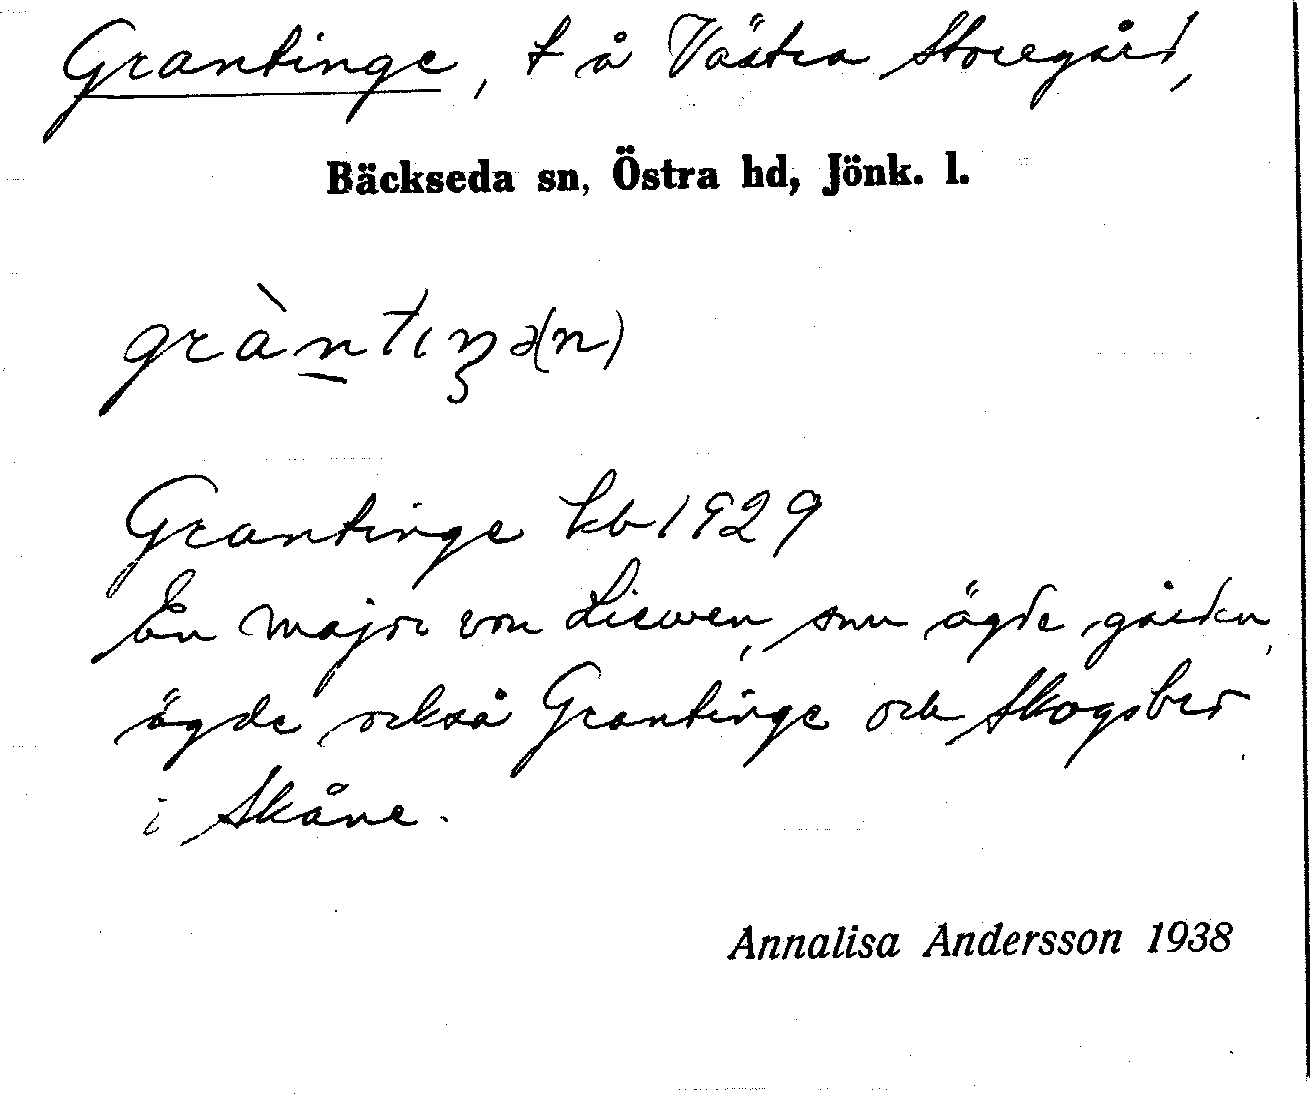 Grantinge, t å Västra Storegård,
Bäckseda sn, Östra hd, Jönk. l.
gràn̲tıŋə(n)
Grantinge kb 1929
En major von Liewen, som ägde gården,
ägde också Grantinge och Skogsber
i Skåne.
Annalisa Andersson 1938